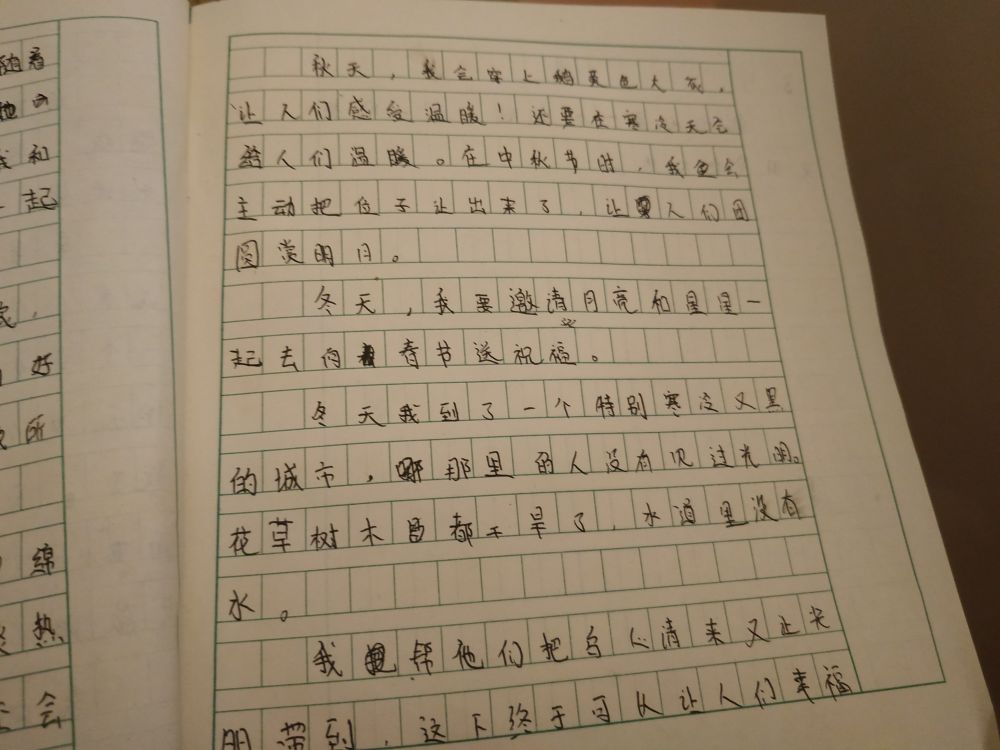 随着
她 
我和
起
好
所
绵
热
会
秋天，我会穿上 黄色大衣，
让人们感受温暖！还要在寒冷天气
给人们温暖。在中秋节时，我 会
主动把位子让出来了，让人们团
圆赏明月。
冬天，我要邀请月亮和星星一
起去向春节送祝福。
冬天我到了一个特别寒冷又黑
的城市，那里的人没有见过光明。
花草树木 都干旱了，水道里没有
水。
我 帮他们把乌 请来又让光
明 到，这下终于可以让人们幸福